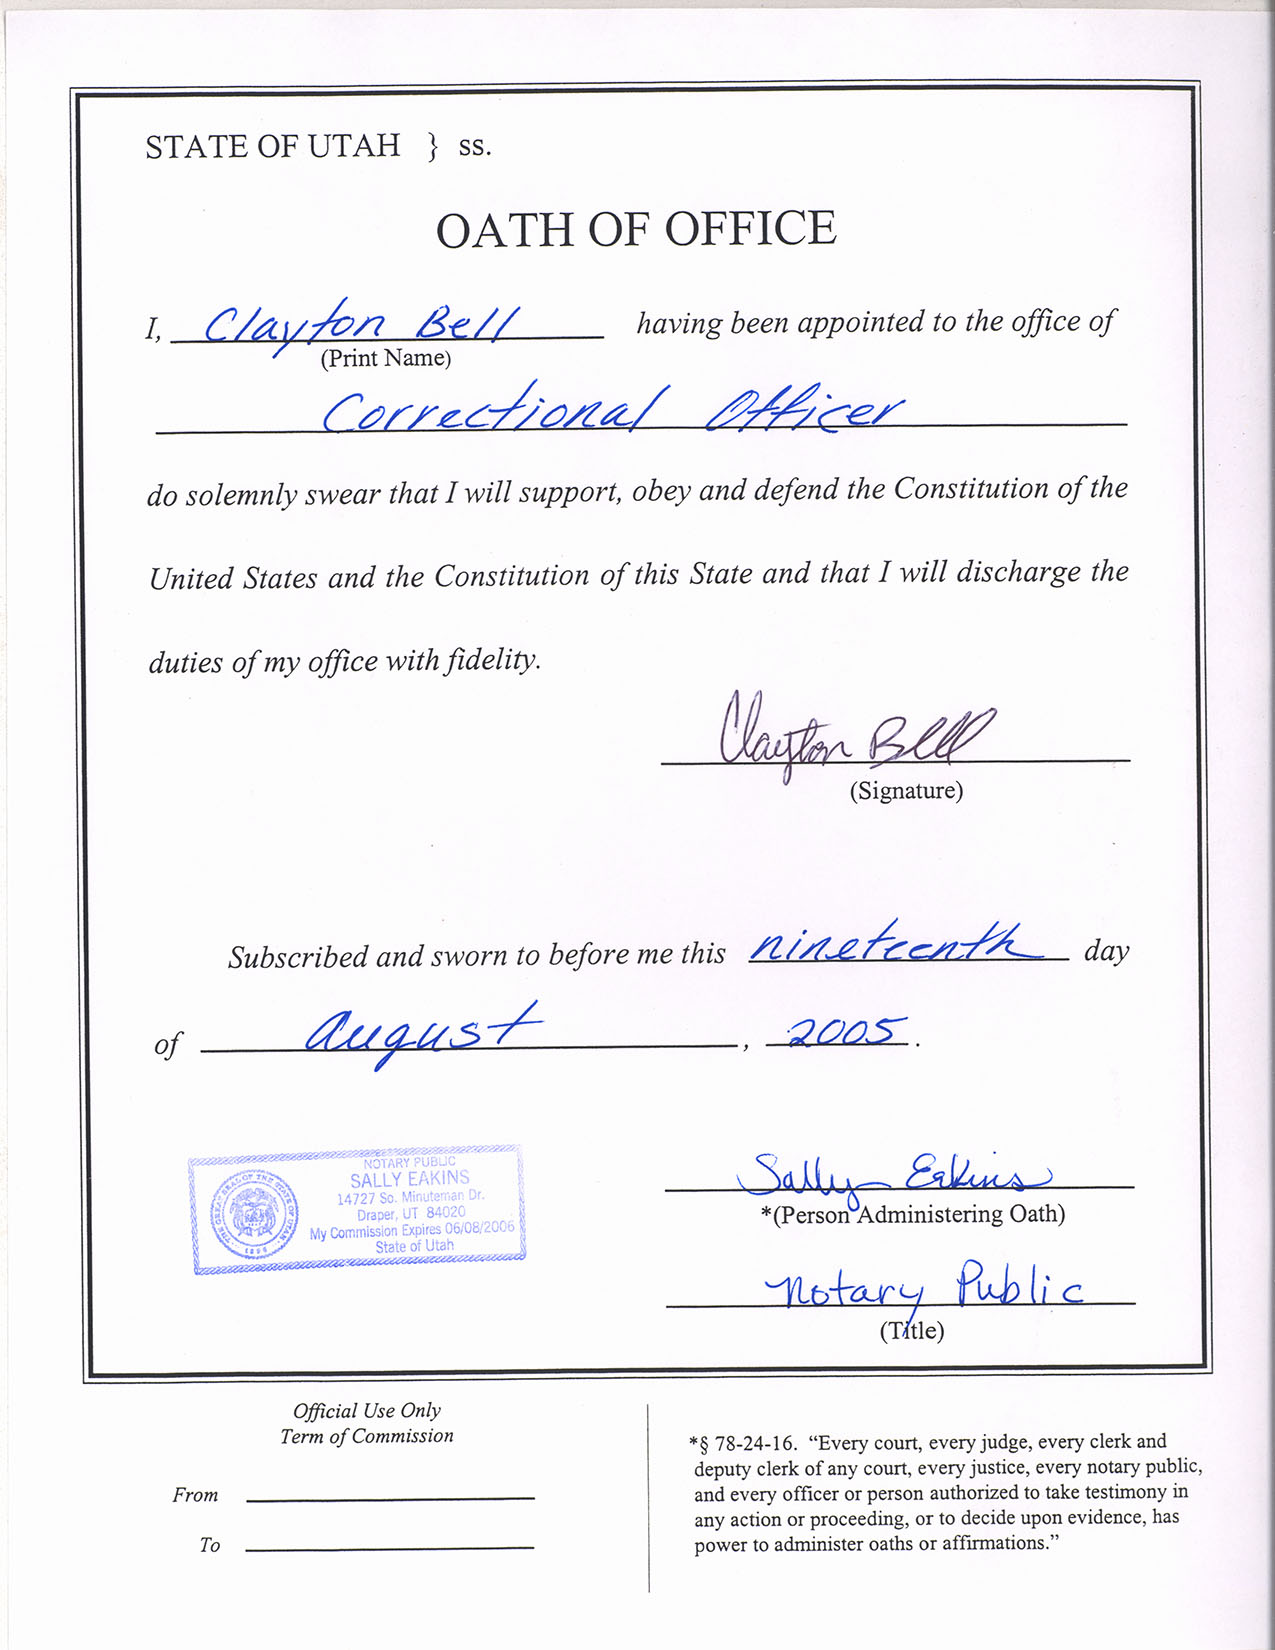 STATE OF UTAH } ss.
OATH OF OFFICE
I, Clayton Bell having been appointed to the office of
(Print Name)
Correctional Officer
do solemnly swear that I will support, obey and defend the Constitution of the
United States and the Constitution of this State and that I will discharge the
duties of my office with fidelity.
Clayton Bell
(Signature)
Subscribed and sworn to before me this nineteenth day
of August, 2005.
NOTARY PUBLIC
SALLY EAKINS
14727 So. Minuteman Dr.
Draper, UT 84020
My Commission Expires 06/08/2006
State of Utah
THE GREAT SEAL OF THE STATE OF UTAH
1896
Sally Eakins
*(Person Administering Oath)
Notary Public
(Title)
Official Use Only
Term of Commission
From
To
*§ 78-24-16. “Every court, every judge, every clerk and
deputy clerk of any court, every justice, every notary public,
and every officer or person authorized to take testimony in
any action or proceeding, or to decide upon evidence, has
power to administer oaths or affirmations.”